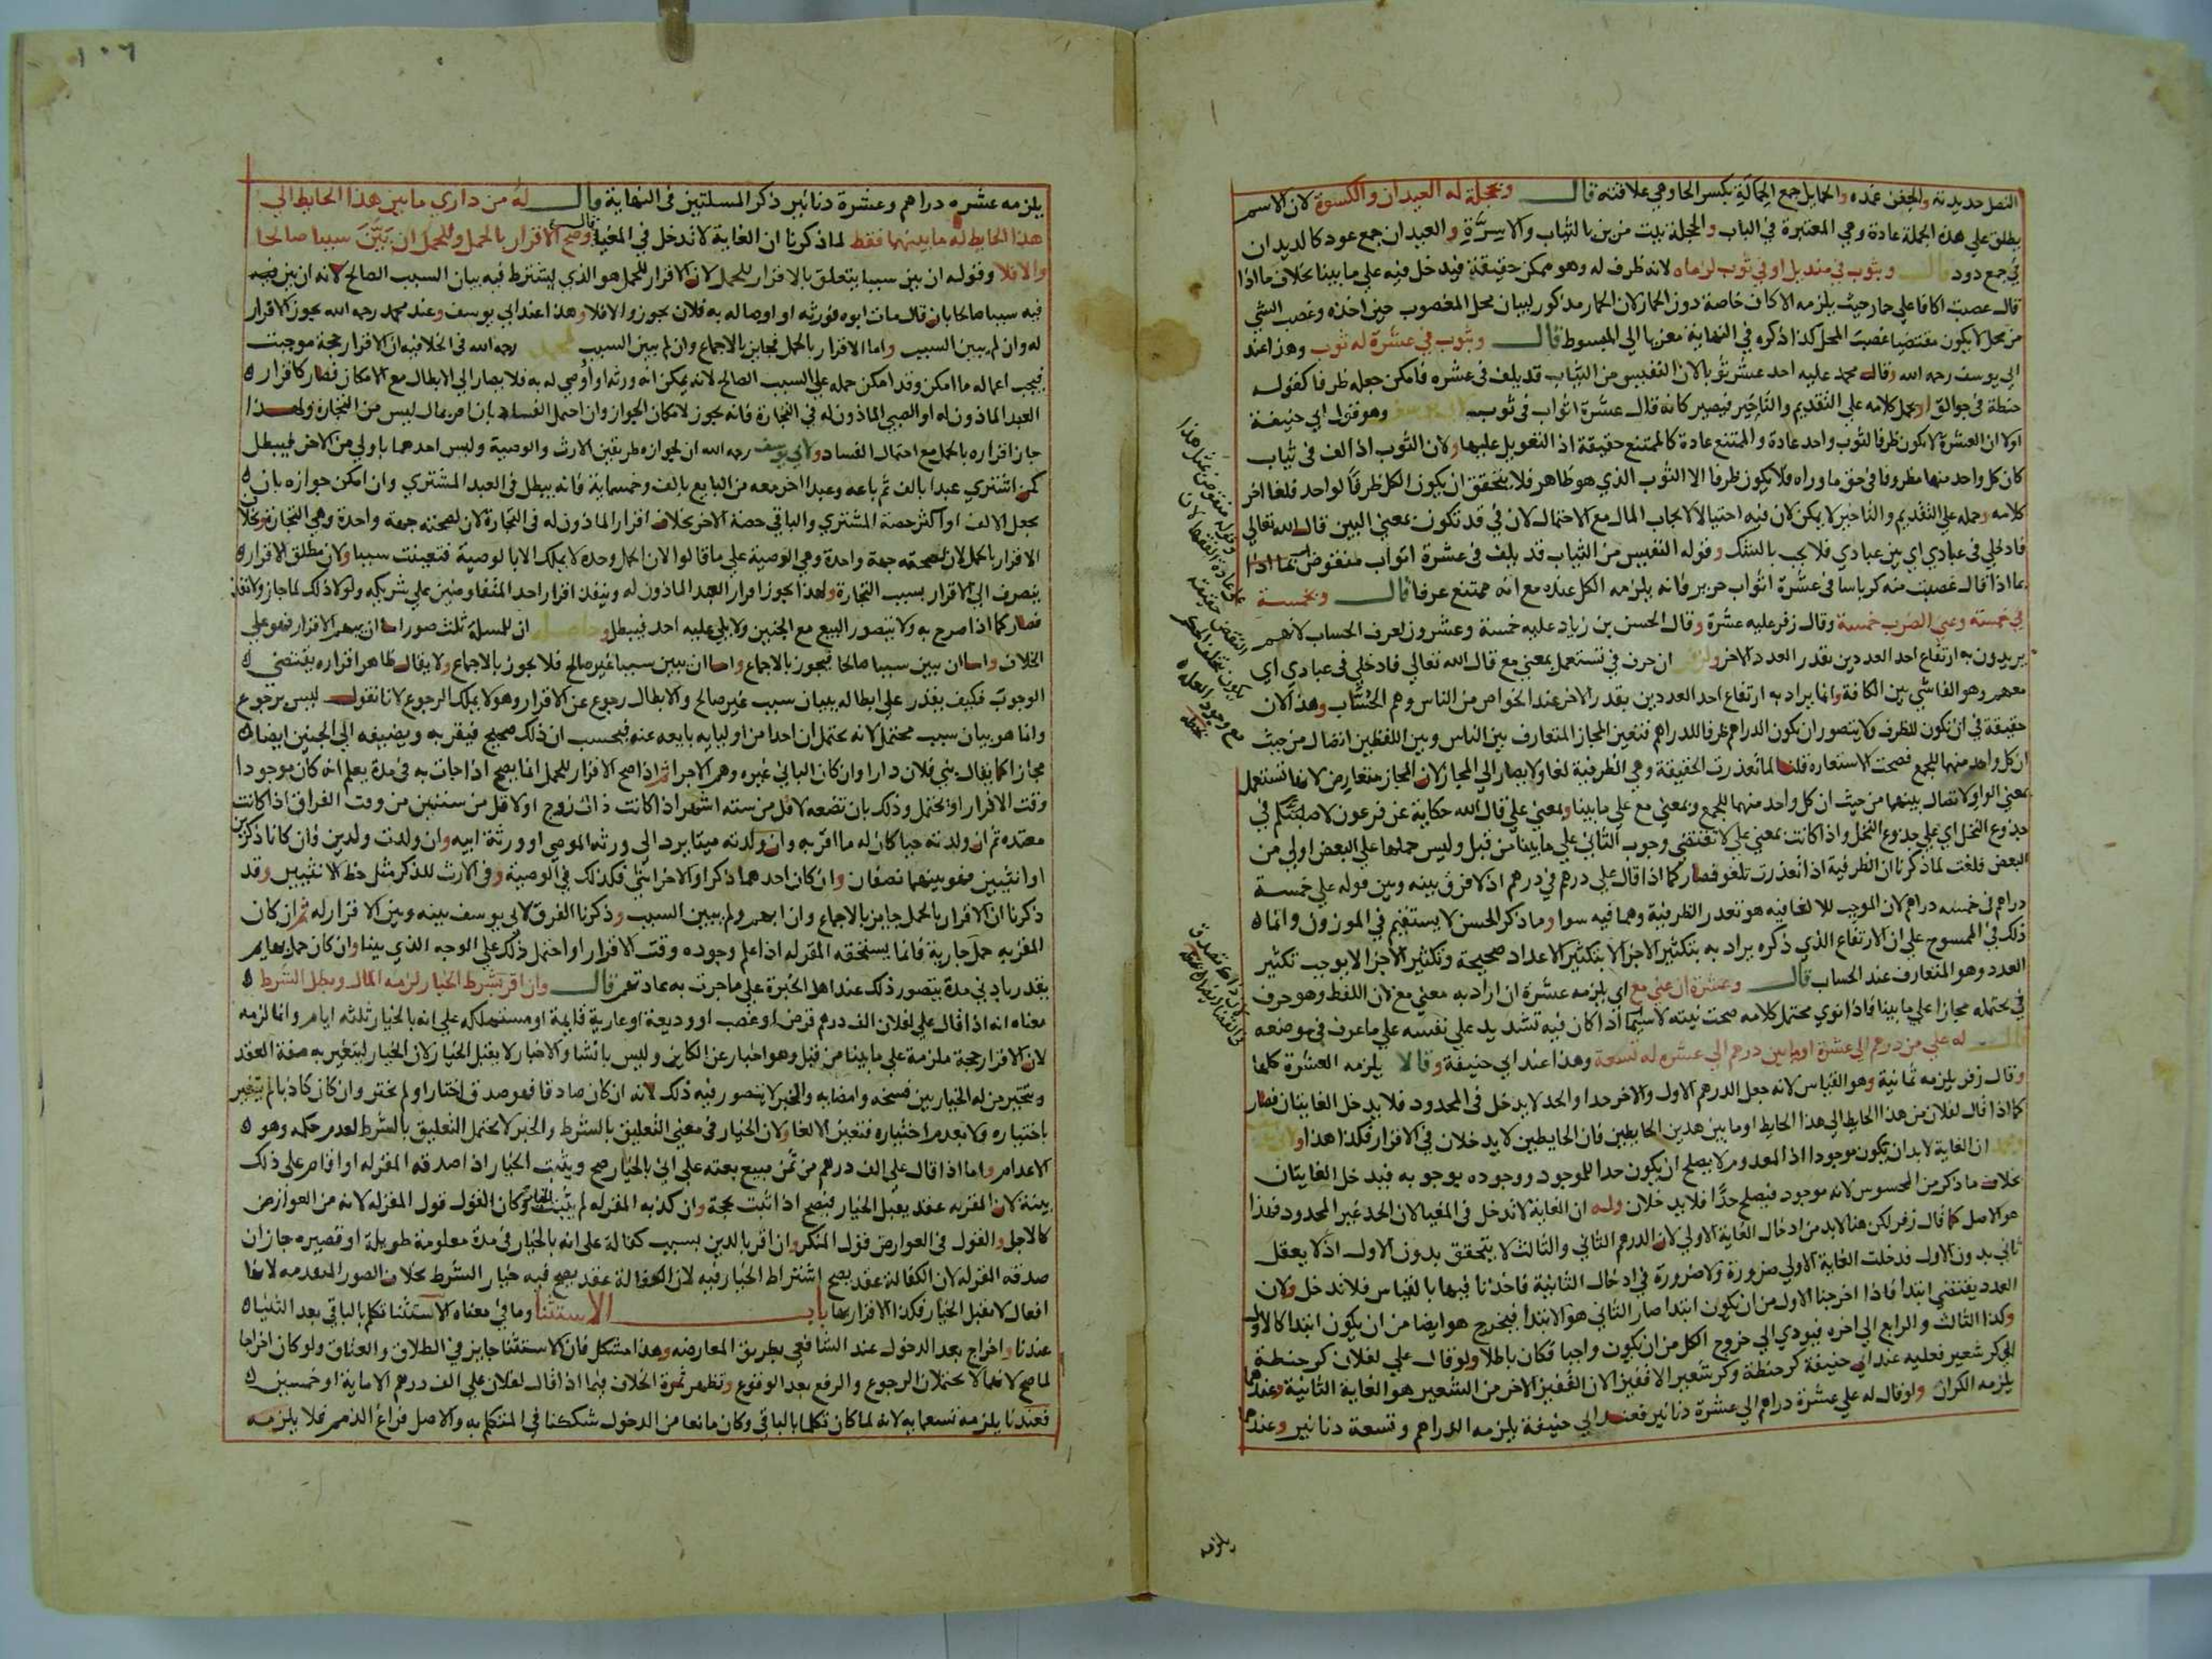 النصل حديدته والجفن غمده والحمايل جمع الحمالة بكسر الحا وهي علاقته قال وبحجلة له العيدان والكسوة لان الاسم
يطلق علي هذه الجملة عادة وهي المعتبرة في الباب والحجلة بيت مزين بالثياب والاسرة والعيدان جمع عود كالديدان
في جمع دود قال وبثوب في منديل او في ثوب لزماه لانه ظرف له وهو ممكن حقيقة فيدخل فيه علي ما بينا بخلاف ما اذا
قال غصبت اكافا علي حمار حيث يلزمه الاكاف خاصة دون الحمار لان الحمار مذكور لبيان محل المغصوب حين اخذه وغصب الشي
من محل لا يكون مقتضيا غصب المحل كذا ذكره في النهاية معزيا الي المبسوط قال وبثوب في عشرة له ثوب وهذا عند
ابي يوسف رحمه الله وقال محمد عليه احد عشر ثوبا لان النفيس من الثياب قد يلف في عشره فامكن جعله ظرفا كقوله
حنطة في جوالق او يحمل كلامه علي التقديم والتاخير فيصير كانه قال عشرة اثواب في ثوب وهو قول ابي حنيفة
اولا ان العشرة لا يكون ظرفا لثوب واحد عادة والممتنع عادة كالممتنع حقيقة اذ التعويل عليها ولان الثوب اذا لف في ثياب
كان كل واحد منها مظروفا في حق ما وراه فلا يكون ظرفا الا الثوب الذي هو ظاهر فلا يتحقق ان يكون الكل ظرفا لواحد فلغا اخر
كلامه وحمله علي التقديم والتاخير لا يمكن لان فيه احتيالا لايجاب المال مع الاحتمال لان في قد تكون بمعني البين قال الله تعالي
فادخلي في عبادي اي بين عبادي فلا يجب بالشك وقوله النفيس من الثياب قد يلف في عشرة اثواب منقوض بما اذا
بما اذا قال غصبت منه كرباسا في عشرة اثواب حرير فانه يلزمه الكل عنده مع انه ممتنع عرفا قال وبخمسة
في خمسة وعني الضرب خمسة وقال زفر عليه عشرة وقال الحسن بن زياد عليه خمسة وعشرون لعرف الحساب لانهم
يريدون به ارتفاع احد العددين بقدر العدد الاخر ولزفر ان حرف في تستعمل بمعني مع قال الله تعالي فادخلي في عبادي اي
معهم وهو الفاشي بين الكافة وانما يراد به ارتفاع احد العددين بقدر الاخر عند الخواص من الناس وهم الحساب وهذا لان
حقيقة في ان يكون للظرف ولا يتصور ان يكون الدراهم ظرفا للدراهم فتعين المجاز المتعارف بين الناس وبين اللفظين اتصال من حيث
ان كل واحد منهما للجمع فصحت الاستعارة قلنا لما تعذرت الحقيقة وهي الظرفية لغا ولا يصار الي المجاز لان المجاز متعارض لانها تستعمل
بمعني الواو لاتصال بينهما من حيث ان كل واحد منهما للجمع وبمعني مع علي ما بينا وبمعني علي قال الله حكاية عن فرعون لاصلبنكم في
جذوع النخل اي علي جذوع النخل واذا كانت بمعني علي لا تقتضي وجوب الثاني علي ما بينا من قبل وليس حملها علي البعض اولي من
البعض فلغت لما ذكرنا ان الظرفية اذا تعذرت تلغو فصار كما اذا قال علي درهم في درهم اذ لا فرق بينه وبين قوله علي خمسة
دراهم في خمسه دراهم لان الموجب للالغا فيه هو تعذر الظرفية وهما فيه سوا وما ذكر الحسن لا يستقيم في الموزون وانما
ذلك في الممسوح علي ان الارتفاع الذي ذكره يراد به بتكثير الاجزا لا بتكثير الاعداد صحيحة وتكثير الاجزا لا يوجب تكثير
العدد وهو المتعارف عند الحساب قال وعشرة ان عني مع اي يلزمه عشرة ان اراد به معني مع لان اللفظ وهو حرف
في يحتمله مجازا علي ما بينا فاذا نوي محتمل كلامه صحت نيته لا سيما اذا كان فيه تشديد علي نفسه علي ما عرف في موضعه
قال له علي من درهم الي عشرة او ما بين درهم الي عشره له تسعة وهذا عند ابي حنيفة وقالا يلزمه العشرة كلها
وقال زفر يلزمه ثمانية وهو القياس لانه جعل الدرهم الاول والاخر حدا والحد لا يدخل في المحدود فلا يدخل الغايتان فصار
كما اذا قال لفلان من هذا الحايط الي هذا الحايط او ما بين هدين الحايطين فان الحايطين لا يدخلان في الاقرار فكذا هذا
ان الغاية لا بد ان تكون موجودا اذ المعدوم لا يصلح ان يكون حدا للموجود ووجوده بوجوبه فيدخل الغايتان
بخلاف ما ذكر من المحسوس لانه موجود فيصلح حدا فلا يدخلان وله ان الغاية لا تدخل في المغيا لان الحد غير المحدود فهذا
هو الاصل كما قال زفر لكن هنا لا بد من ادخال الغاية الاولي لان الدرهم الثاني والثالث لا يتحقق بدون الاول اذ لا يعقل
ثاني بدون الاول فدخلت الغاية الاولي ضرورة ولا ضرورة في ادخال الثانية فاخذنا فيها بالقياس فلا تدخل ولان
العدد يقتضي ابتدا فاذا اخرجنا الاول من ان يكون ابتدا صار الثاني هو الابتدا فيخرج هو ايضا من ان يكون ابتدا كالاول
وكذا الثالث والرابع الي اخره فيودي الي خروج الكل من ان يكون واجبا فكان باطلا ولو قال علي لفلان كر حنطة
الي كر شعير فعليه عند ابي حنيفة كر حنطة وكر شعير الا قفيزا لان القفيز الاخر من الشعير هو الغاية الثانية وعندهما
يلزمه الكران ولو قال له علي عشرة دراهم الي عشرة دنانير فعند ابي حنيفة يلزمه الدراهم وتسعة دنانير وعندهما
يلزمه
١٠٦
يلزمه عشره دراهم وعشرة دنانير ذكر المسلتين في النهاية قال له من داري ما بين هذا الحايط الي
هذا الحايط له ما بينهما فقط لما ذكرنا ان الغاية لا تدخل في المغيا قال وصح الاقرار بالحمل وللحمل ان بين سببا صالحا
والا فلا وقوله ان بين سببا يتعلق بالاقرار للحمل لان الاقرار للحمل هو الذي يشترط فيه بيان السبب الصالح لانه ان بين
فيه سببا صالحا بان قال مات ابوه فورثه او اوصا له به فلان يجوز والا فلا وهذا عند ابي يوسف وعند محمد رحمه الله يجوز الاقرار
له وان لم يبين السبب واما الاقرار بالحمل فجايز بالاجماع وان لم يبين السبب لمحمد رحمه الله في الخلافيه ان الاقرار حجة موجبت
فيجب اعماله ما امكن وقد امكن حمله علي السبب الصالح لانه يمكن انه ورثه او اوصي له به فلا يصار الي الابطال مع الامكان فصار كاقرار
العبد الماذون له او الصبي الماذون له في التجارة فانه يجوز لامكان الجواز وان احتمل الفساد بان اقر بمال ليس من التجارة ولهذا
جاز اقراره بالحمل مع احتمال الفساد ولابي يوسف رحمه الله ان لجوازه طريقين الارث والوصية وليس احدهما باولي من الاخر فيبطل
كمن اشتري عبدا بالف ثم باعه وعبدا اخر معه من البايع بالف وخمسماية فانه يبطل في العبد المشتري وان امكن جوازه بان
يجعل الالف او اكثر حصة المشتري والباقي حصة الاخر بخلاف اقرار الماذون له في التجارة لان لصحته جهة واحدة وهي التجارة وبخلاف
الاقرار بالحمل لان لصحته جهة واحدة وهي الوصية علي ما قالوا لان الحمل وحده لا يملك الا بالوصية فتعينت سببا ولان مطلق الاقرار
ينصرف الي الاقرار بسبب التجارة ولهذا يجوز اقرار العبد الماذون له وينفذ اقرار احد المتفاوضين علي شريكه ولولا ذلك لما جاز ولا نفذ
فصار كما اذا صرح به ولا يتصور البيع مع الجنين ولا يلي عليه احد فيبطل وحاصله ان للمسلة ثلث صور اما ان يبهم الاقرار فهو علي
الخلاف واما ان يبين سببا صالحا فيجوز بالاجماع واما ان يبين سببا غير صالح فلا يجوز بالاجماع ولا يقال ظاهر اقراره يقتضي
الوجوب فكيف يقدر علي ابطاله ببيان سبب غير صالح والابطال رجوع عن الاقرار وهو لا يملك الرجوع لانا نقول ليس برجوع
وانما هو بيان سبب محتمل لانه يحتمل ان احدا من اوليايه بايعه عنه فيحسب ان ذلك صحيح فيقر به ويضيفه الي الجنين ايضا
مجازا كما يقال بني فلان دارا وان كان الباني غيره وهم الاجرا ثم اذا صح الاقرار للحمل انما يصح اذا جات به في مدة يعلم انه كان موجودا
وقت الاقرار او يحتمل وذلك بان تضعه لاقل من سته اشهر اذا كانت ذات زوج او لاقل من سنتين من وقت الفراق اذا كانت
معتده ثم ان ولدته حيا كان له ما اقر به وان ولدته ميتا يرد الي ورثة الموصي او ورثة ابيه وان ولدت ولدين فان كانا ذكرين
او انثيين فهو بينهما نصفان وان كان احدهما ذكرا والاخر انثي فكذلك في الوصية وفي الارث للذكر مثل حظ الانثيين وقد
ذكرنا ان الاقرار بالحمل جايز بالاجماع وان ابهم ولم يبين السبب وذكرنا الفرق لابي يوسف بينه وبين الاقرار له ثم ان كان
المقر به حمل جارية فانما يستحقه المقر له اذا علم وجوده وقت الاقرار او احتمل ذلك علي الوجه الذي بينا وان كان حمل بهايم
يقدر بادني مدة يتصور ذلك عند اهل الخبرة علي ما جرت به عادتهم قال وان اقر بشرط الخيار لزمه المال وبطل الشرط
معناه انه اذا قال علي لفلان الف درهم قرض او غصب او وديعة او عارية قايمة او مستهلكه علي انه بالخيار ثلثه ايام وانما لزمه
لان الاقرار حجة ملزمة علي ما بينا من قبل وهو اخبار عن الكاين وليس بانشا والاخبار لا يقبل الخيار لان الخيار ليتغير به صفة العقد
ويتخير من له الخيار بين فسخه وامضايه والخبر لا يتصور فيه ذلك لانه ان كان صادقا فهو صدق اختار او لم يختر وان كان كاذبا لم يتغير
باختياره ولا بعدم اختياره فتعين الالغا ولان الخيار في معني التعليق بالشرط والخبر لا يحتمل التعليق بالشرط لعدم حكمه وهو
الاعدام واما اذا قال علي الف درهم من ثمن مبيع بعته علي اني بالخيار صح ويثبت الخيار اذا صدقه المقر له او اقام علي ذلك
بينة لان المقر به عقد يقبل الخيار فيصح اذا اثبت بحجة وان كذبه المقر له لم يثبت الخيار وكان القول قول المقر له لانه من العوارض
كالاجل والقول في العوارض قول المنكر وان اقر بالدين بسبب كفالة علي انه بالخيار في مدة معلومة طويلة او قصيره جاز ان
صدقه المقر له لان الكفالة عقد يصح اشتراط الخيار فيه لان الكفالة عقد يصح فيه خيار الشرط بخلاف الصور المتقدمه لانها
افعال لا تقبل الخيار فكذا الاقرار بها باب الاستثنا وما في معناه الاستثنا تكلم بالباقي بعد الثنيا
عندنا واخراج بعد الدخول عند الشافعي بطريق المعارضه وهذا مشكل فان الاستثنا جايز في الطلاق والعتاق ولو كان اخراجا
لما صح لانهما لا يحتملان الرجوع والرفع بعد الوقوع وتظهر ثمرة الخلاف فيما اذا قال لفلان علي الف درهم الا ماية او خمسين
فعندنا يلزمه تسعمايه لانه لما كان تكلما بالباقي وكان مانعا من الدخول شككنا في المتكلم به والاصل فراغ الذمم فلا يلزمه